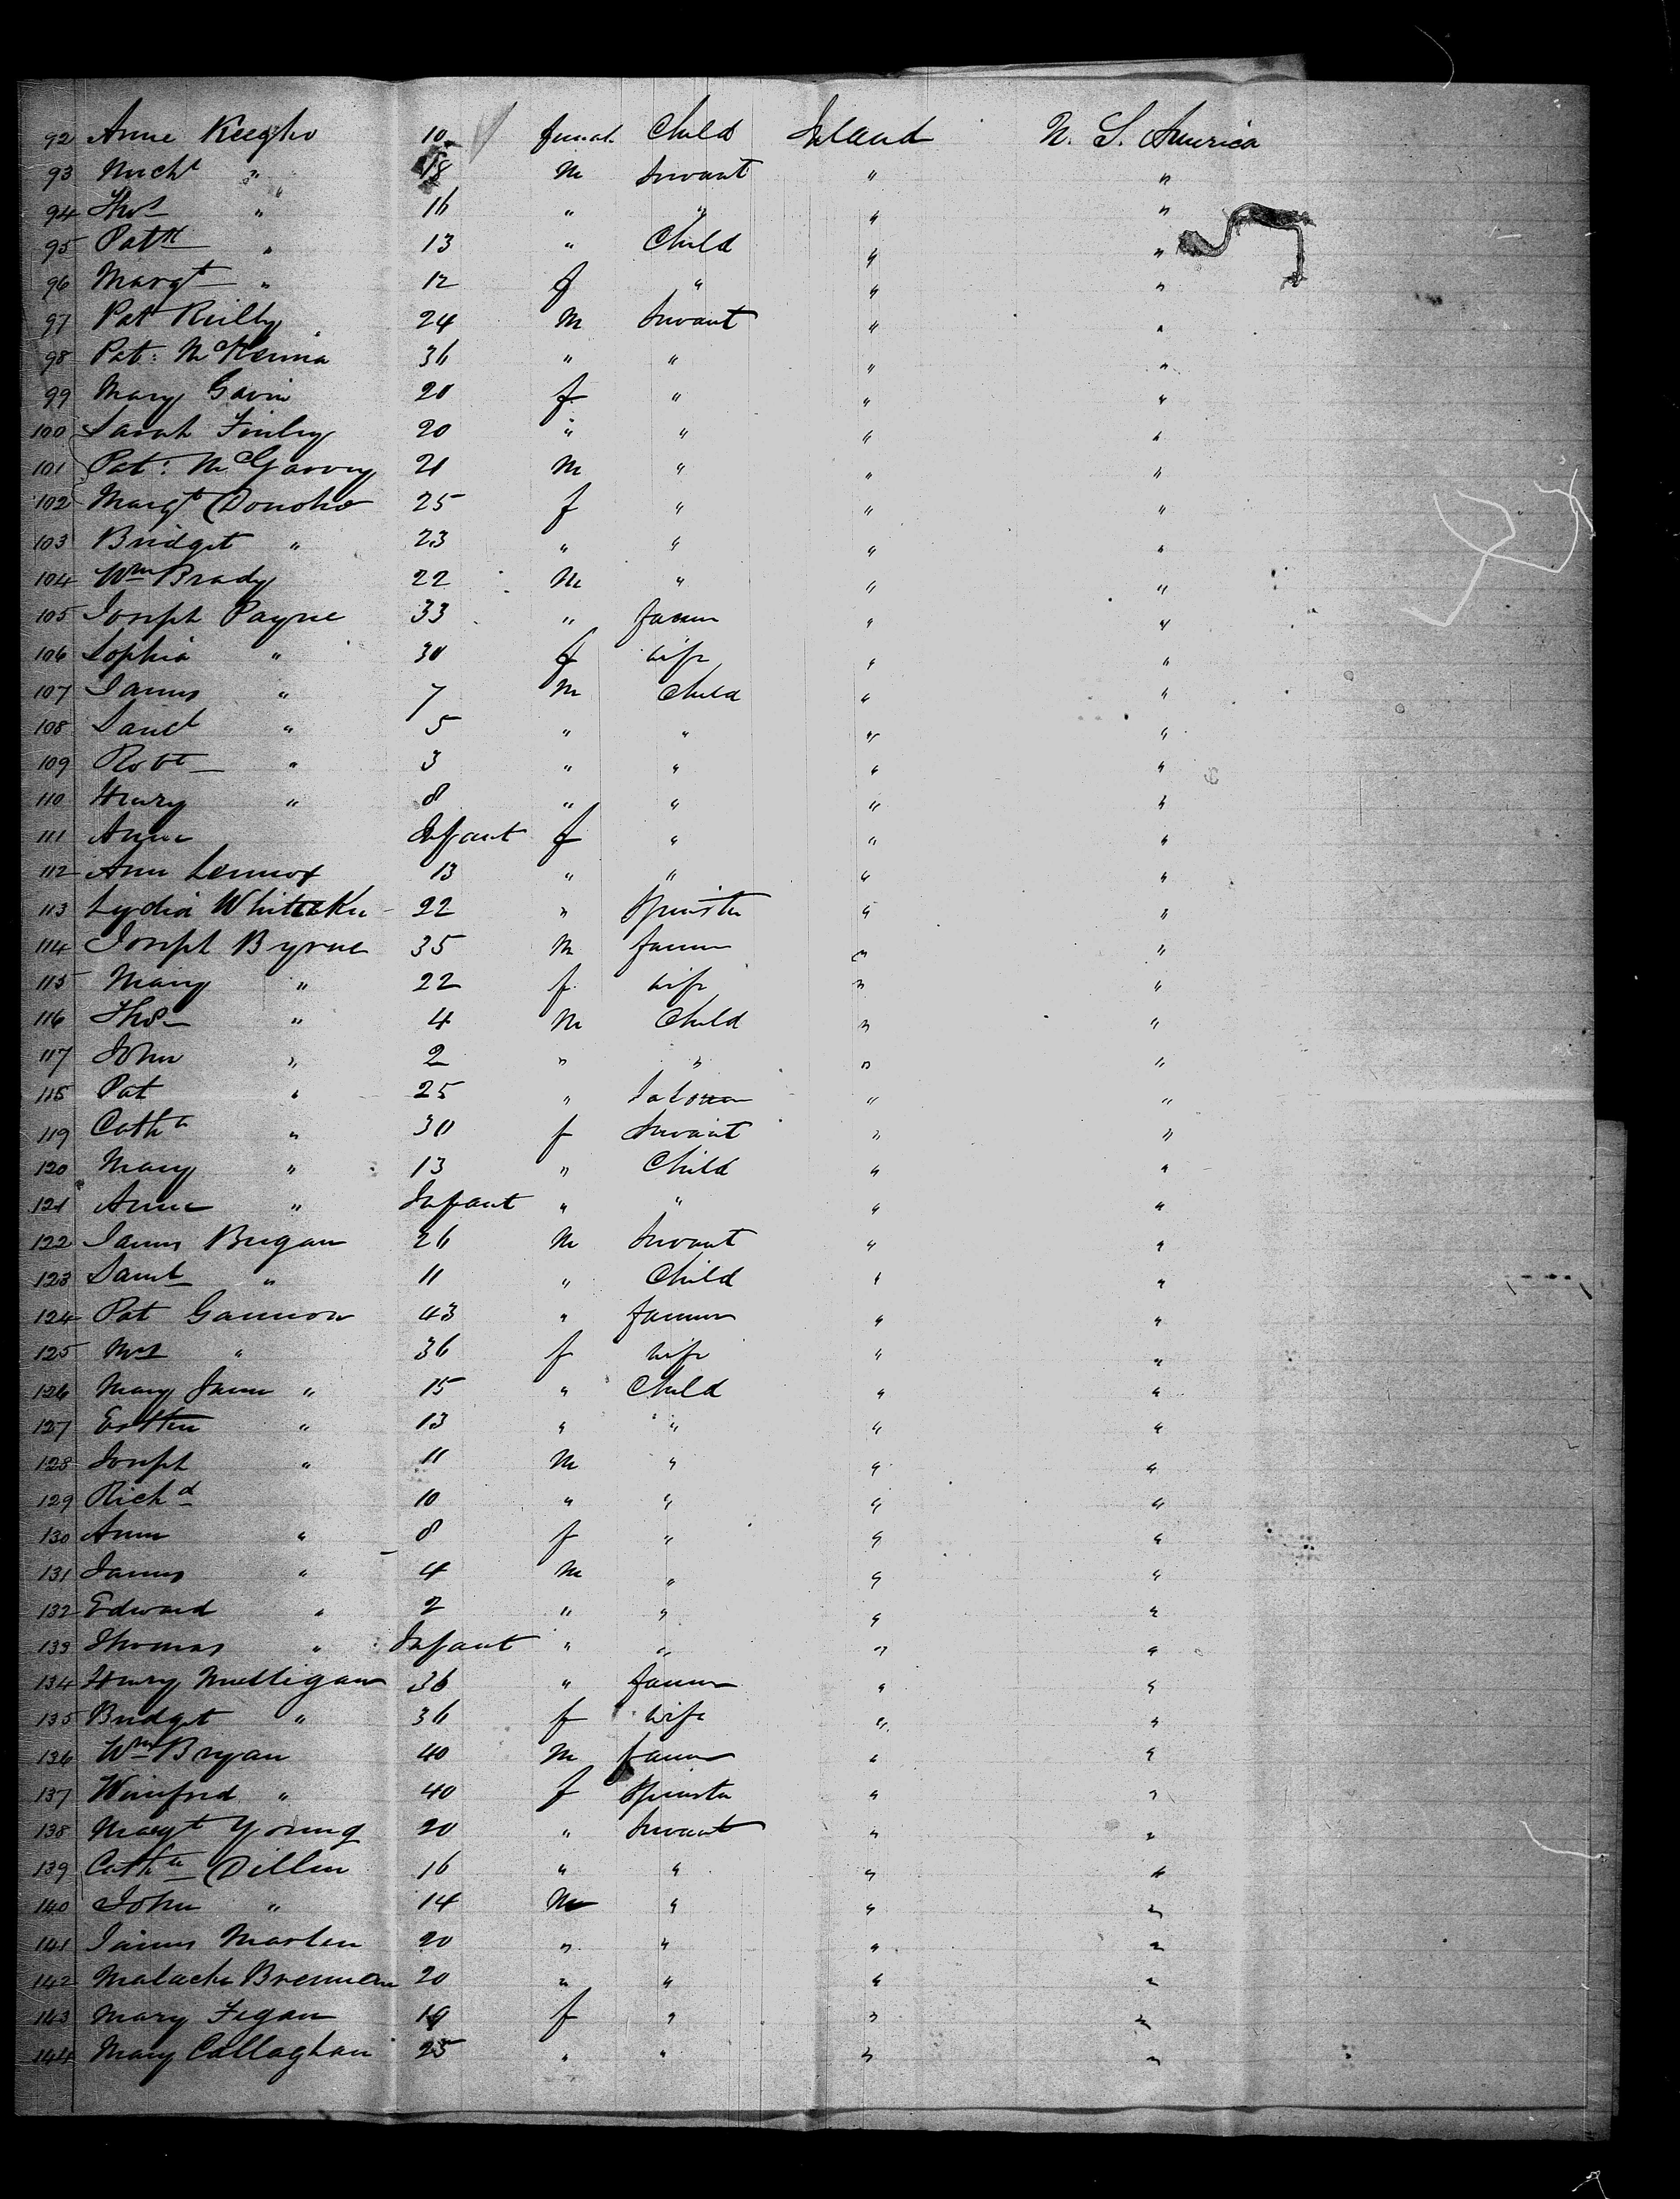 92 Anne Keegho 10 female Child Ireland U. S. America
93 Michl " 18 M Servant " "
94 Thos " 16 " " " "
95 Patk " 13 " Child " "
96 Margt " 12 f " " "
97 Pat Reilly 24 M Servant " "
98 Pat: McKenna 36 " " " "
99 Mary Gavin 20 f " " "
100 Sarah Finley 20 " " " "
101 Pat: McGarvey 21 M " " "
102 Margt Donoho 25 f " " "
103 Bridget " 23 " " " "
104 Wm Brady 22 M " " "
105 Joseph Payne 33 " farmer " "
106 Sophia " 30 f wife " "
107 James " 7 M Child " "
108 Saml " 5 " " " "
109 Robt " 3 " " " "
110 Henry " 8 " " " "
111 Anne Infant f " " "
112 Ann Lennox 13 " " " "
113 Lydia Whitaker 22 " Spinster " "
114 Joseph Byrne 35 M farmer " "
115 Mary " 22 f wife " "
116 Thos " 4 M Child " "
117 John " 2 " " " "
118 Pat " 25 " Laborer " "
119 Cathe " 30 f Servant " "
120 Mary " 13 " Child " "
121 Anne " Infant " " " "
122 James Bregan 26 M Servant " "
123 Saml " 11 " Child " "
124 Pat Gannon 43 " farmer " "
125 Mrs " 36 f wife " "
126 Mary Jane " 15 " Child " "
127 Esther " 13 " " " "
128 Joseph " 11 M " " "
129 Richd 10 " " " "
130 Ann " 8 f " " "
131 James " 4 M " " "
132 Edward " 2 " " " "
133 Thomas " Infant " " " "
134 Henry Mulligan 36 " farmer " "
135 Bridget " 36 f wife " "
136 Wm Bryan 40 M farmer " "
137 Winifred " 40 f Spinster " "
138 Margt Young 20 " Servant " "
139 Cathe Dillon 16 " " " "
140 John " 14 M " " "
141 James Marten 20 " " " "
142 Malachi Brennan 20 " " " "
143 Mary Fegan 19 f " " "
144 Mary Callaghan 25 " " " "